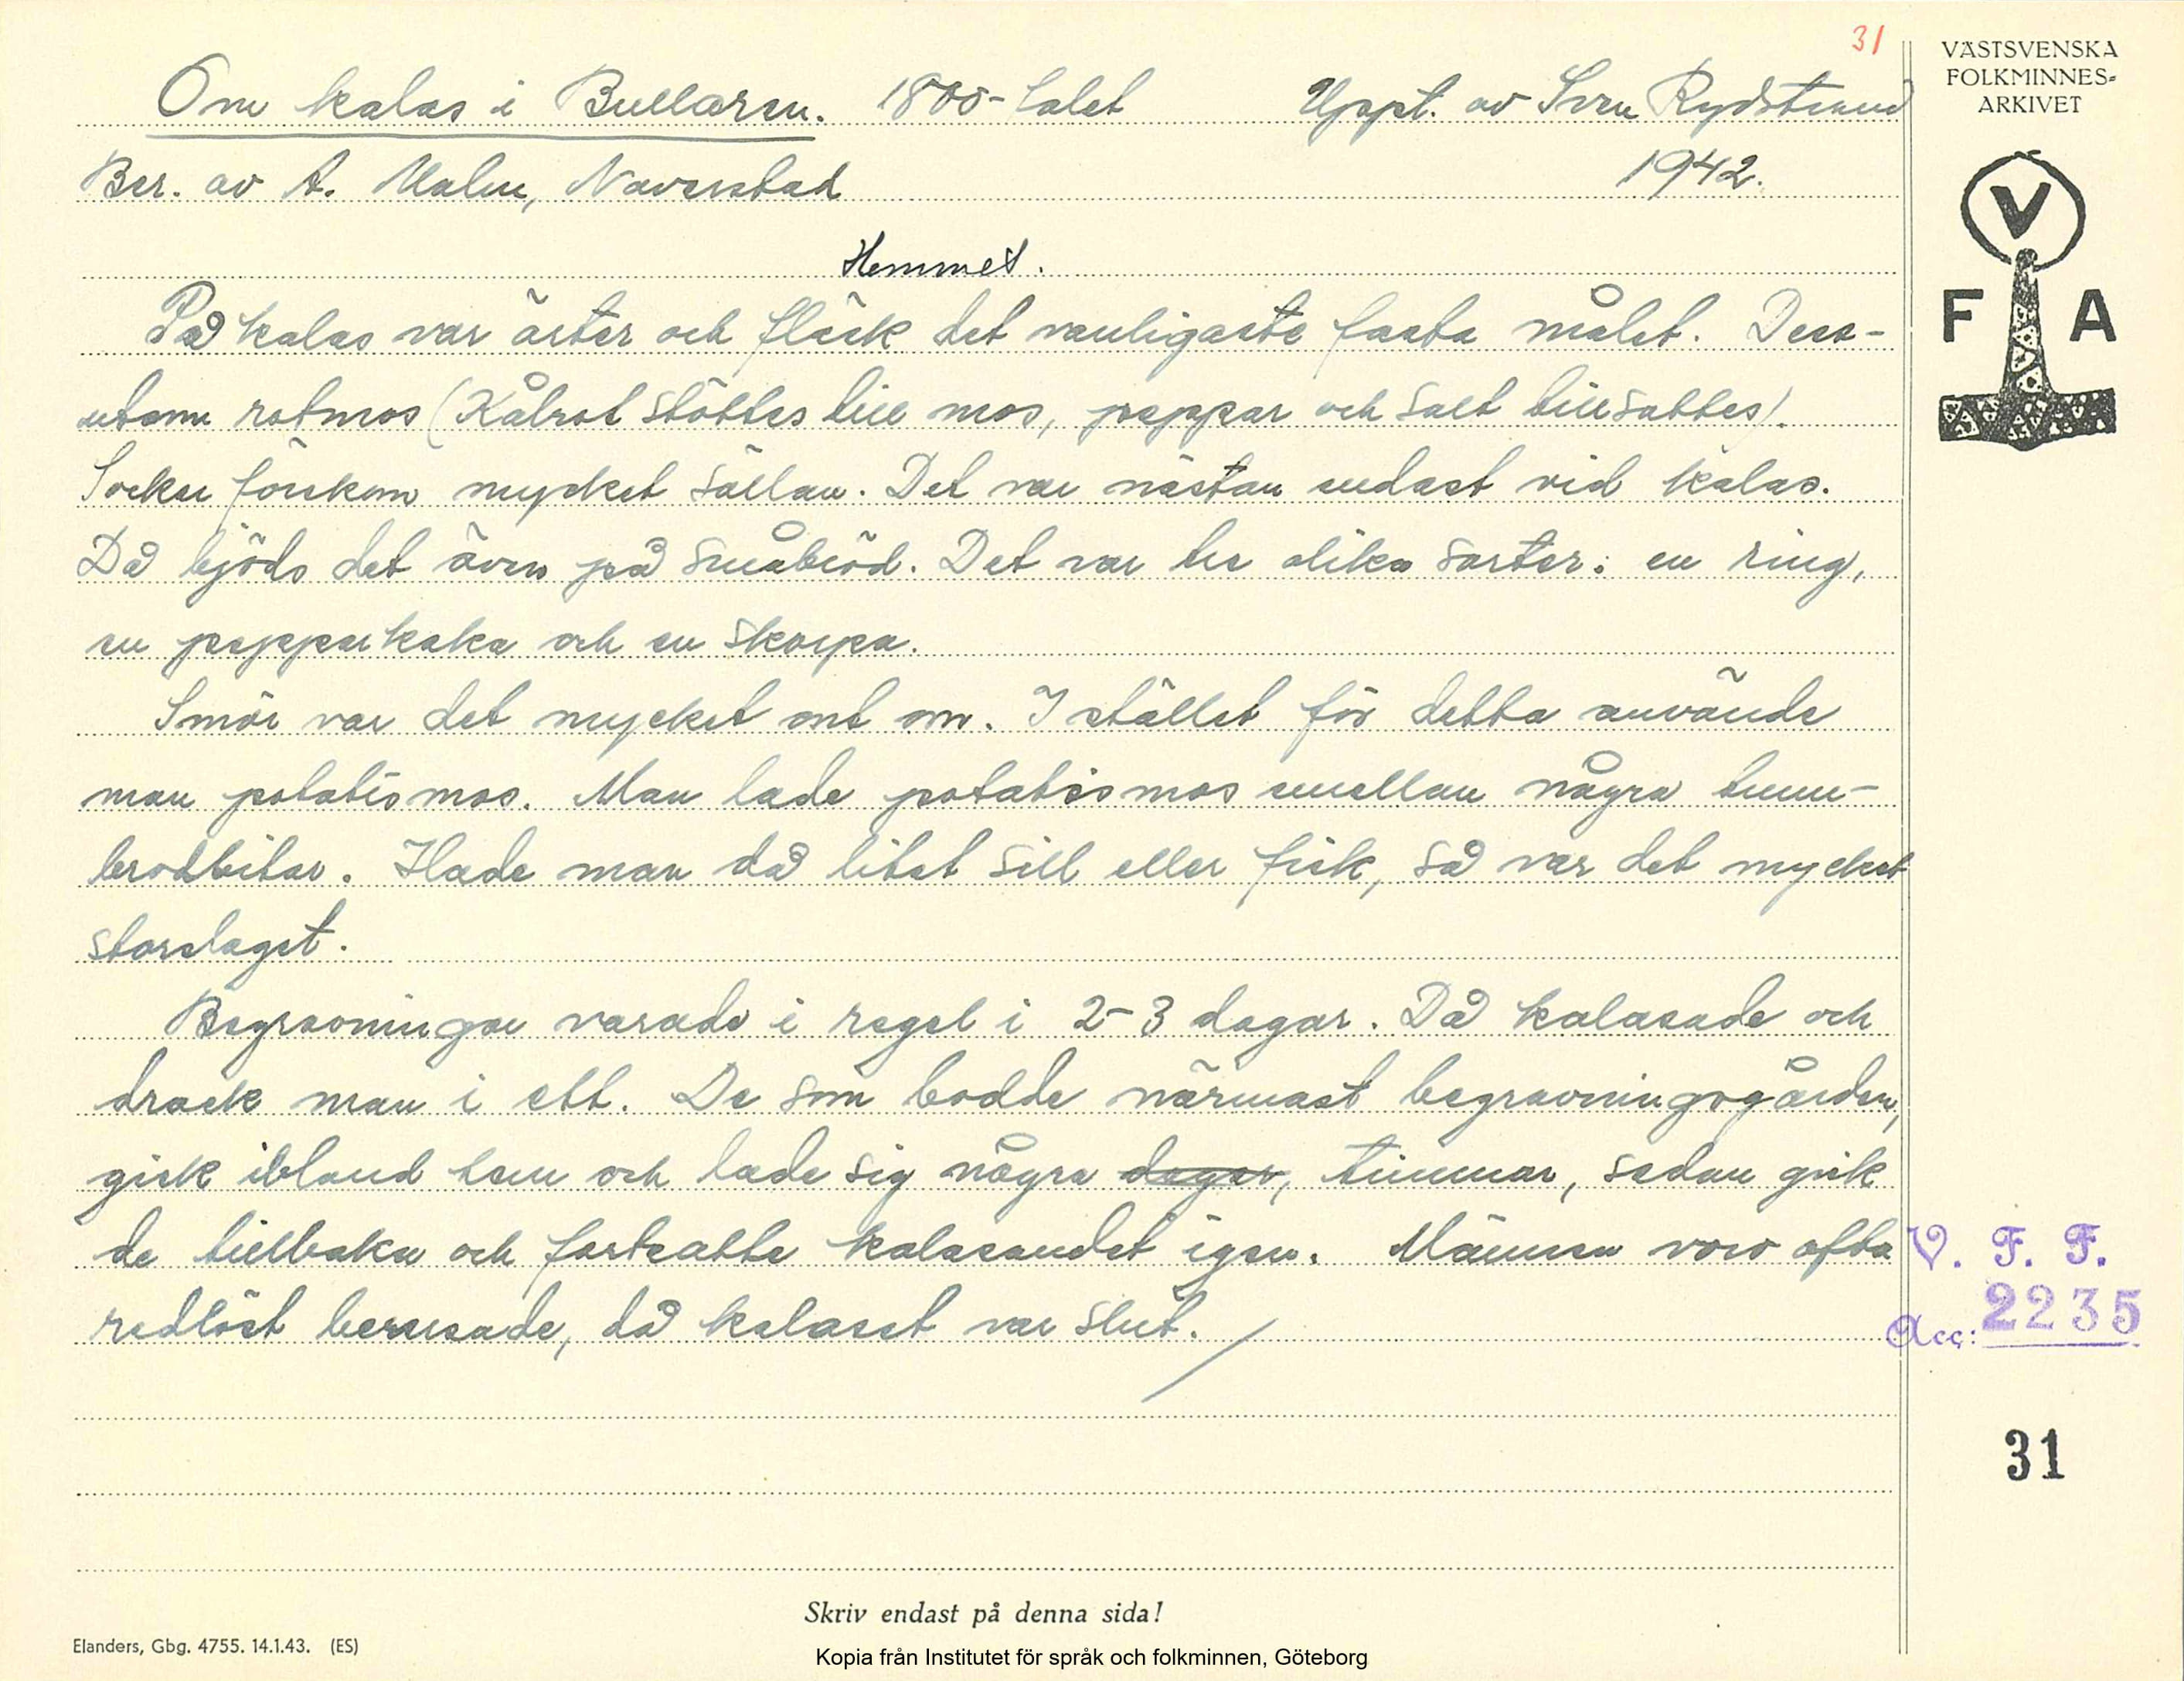 31
VÄSTSVENSKA
FOLKMINNES-
ARKIVET
V
F A
Om kalas i Bullaren. 1800-talet Uppt. av Sven Rydstrand
Ber. av A. Malm, Naverstad 1942.
Hemmet.
På kalas var ärter och fläsk det vanligaste fasta målet. Dess-
utom rotmos (Kålrot stöttes till mos, peppar och salt tillsattes).
Socker förekom mycket sällan. Det var nästan endast vid kalas.
Då bjöds det även på småbröd. Det var tre olika sorter: en ring,
en pepparkaka och en skorpa.
Smör var det mycket ont om. I stället för detta använde
man potatismos. Man lade potatismos emellan några tunn-
brödbitar. Hade man då litet sill eller fisk, så var det mycket
storslaget.
Begravningar varade i regel i 2-3 dagar. Då kalasade och
drack man i ett. De som bodde närmast begravningsgården,
gick ibland hem och lade sig några dagar, timmar, sedan gick
de tillbaka och fortsatte kalasandet igen. Männen voro ofta
redlöst berusade, då kalaset var slut.
V. F. F.
Acc: 2235
31
Skriv endast på denna sida!
Elanders, Gbg. 4755. 14.1.43. (ES)
Kopia från Institutet för språk och folkminnen, Göteborg